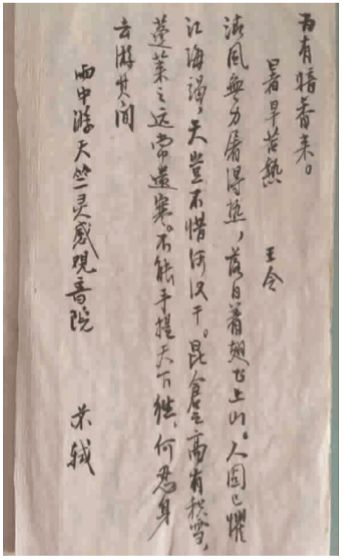 为有暗香来。
暑旱苦热 王令
清风無力屠得热，落日着翅飞上山。人固已懼
江海竭，天豈不惜河汉干。昆仑之高有积雪，
蓬莱之远常遗寒。不能手提天下往，何忍身
去游其间
雨中游天竺灵感观音院 苏轼